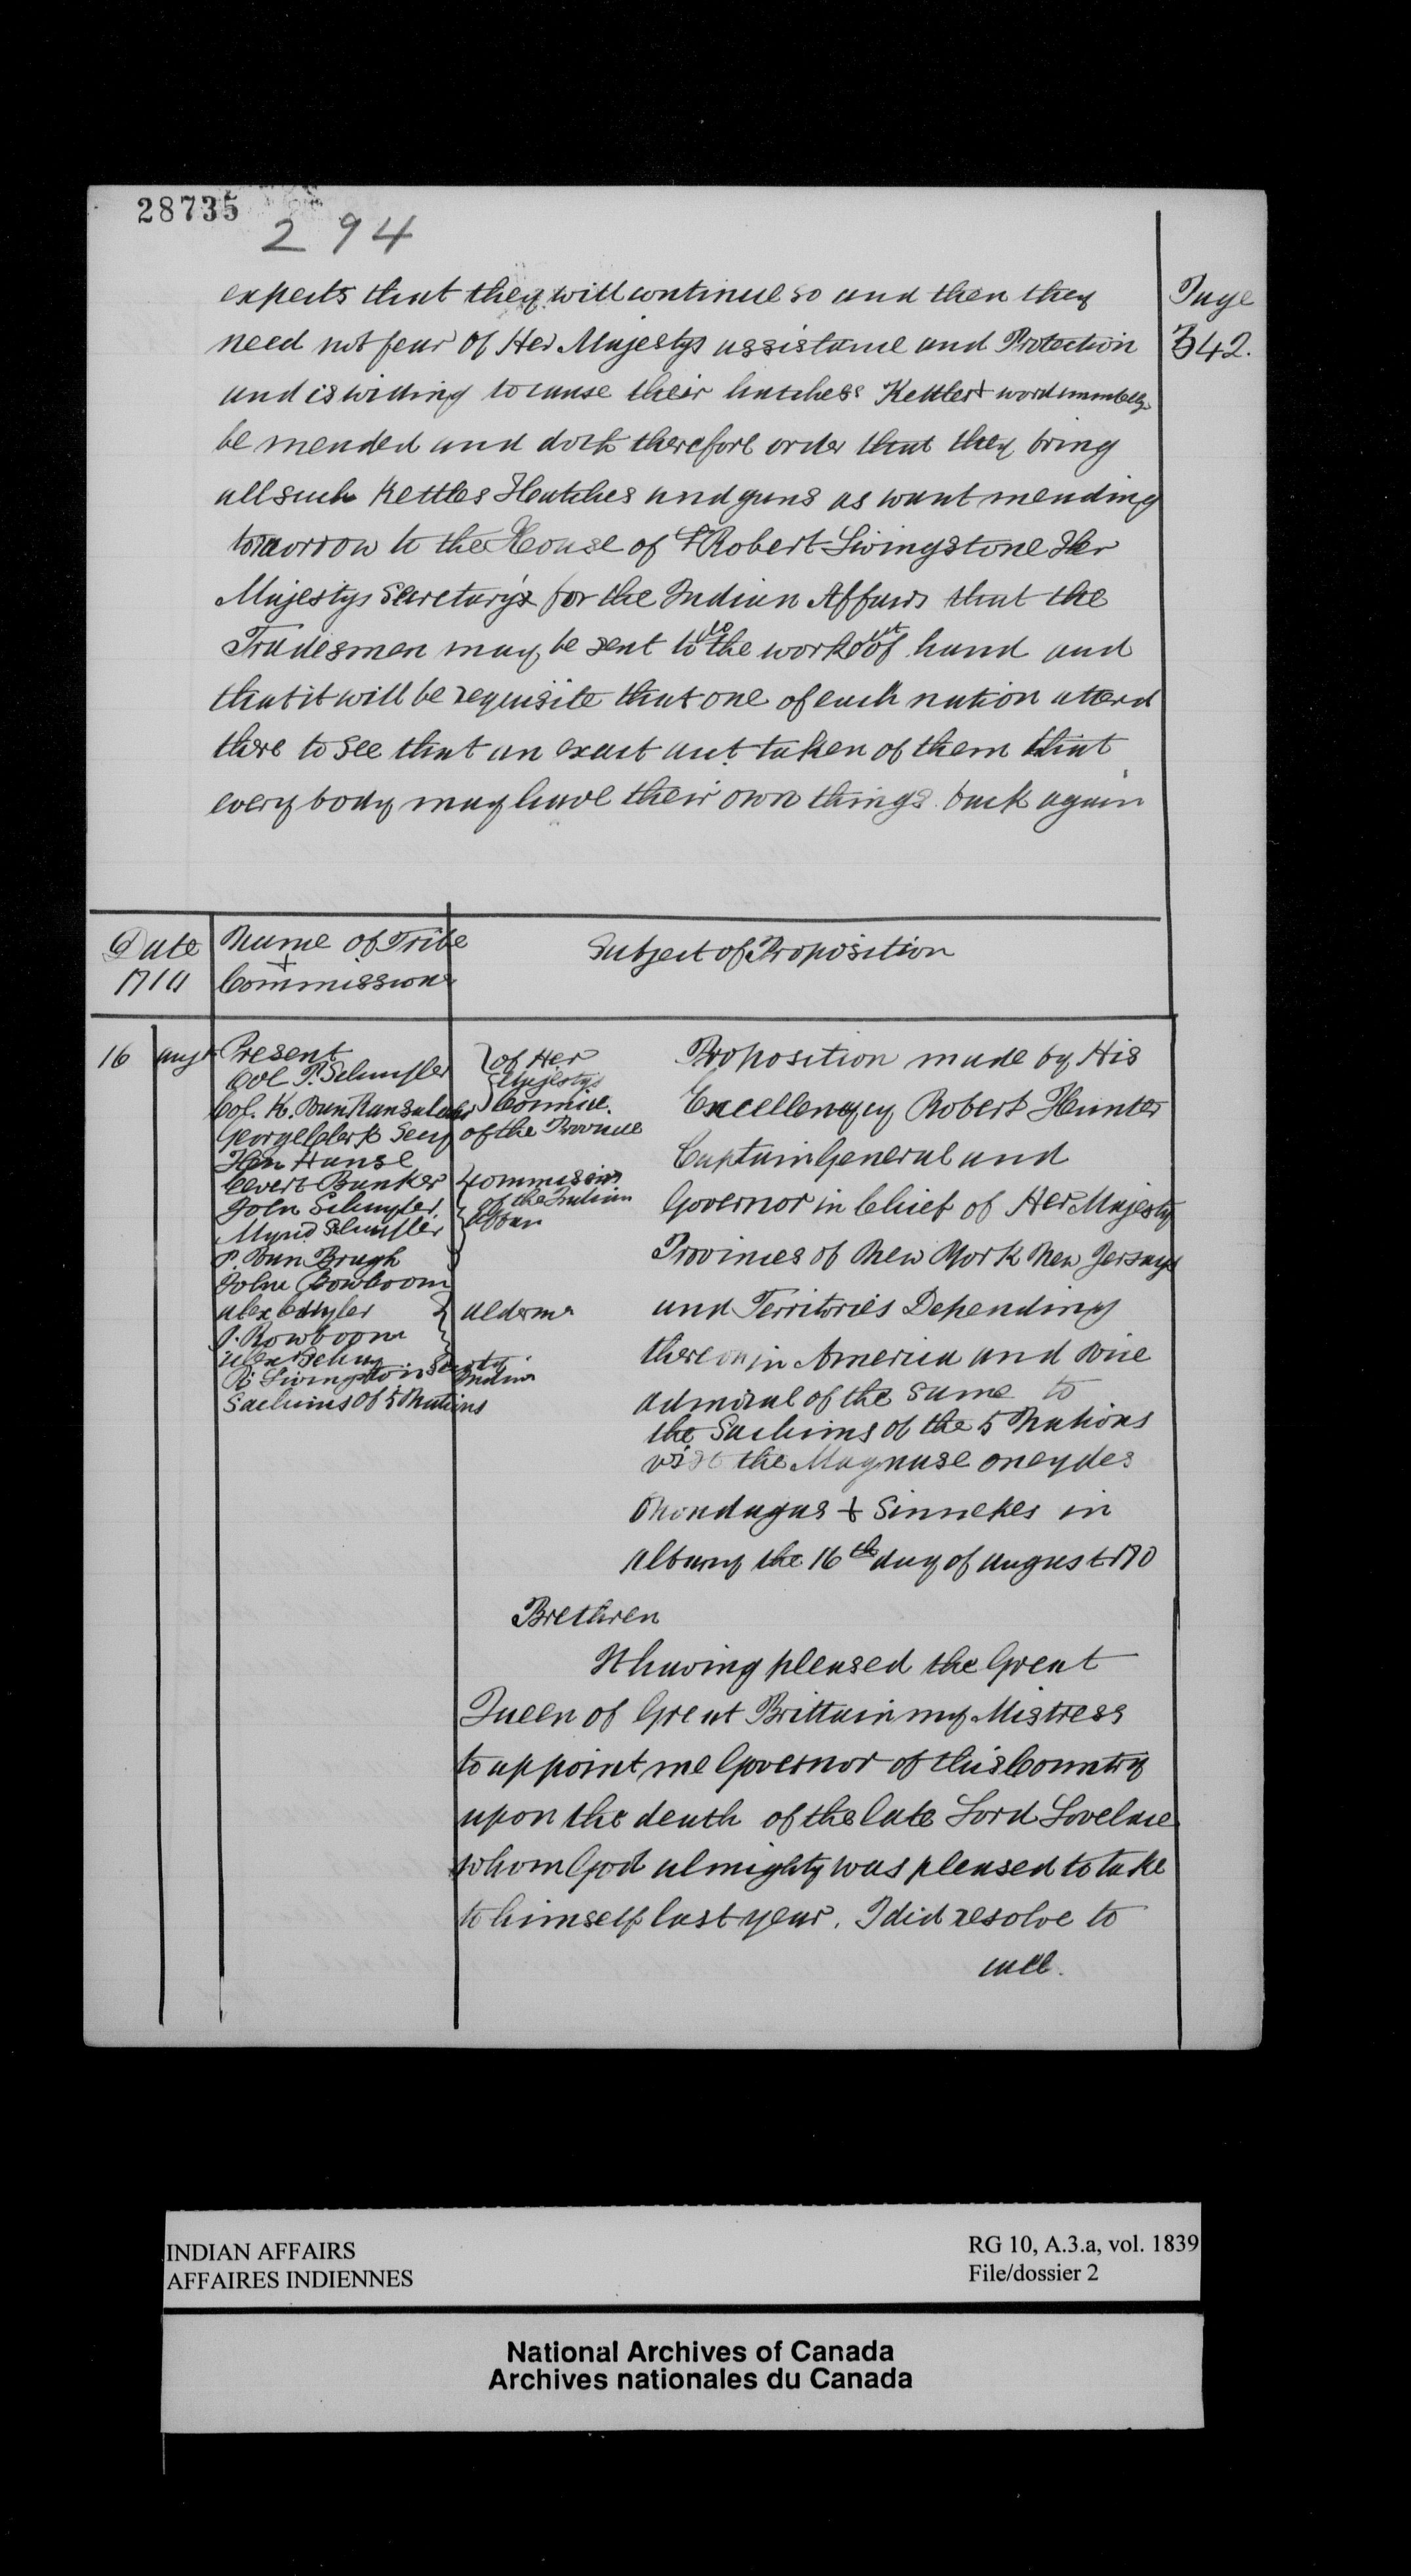 28735
294
expects that they will continue so and then they
need not fear of Her Majestys assistance and Protection
and is willing to cause their hatches Kettles +
be mended and doth therefore order that they bring
all such Kettles Hatches and guns as want mending
tomorrow to the House of Robert Livingstone Her
Majestys Secretary's for the Indian Affairs that the
Tradesmen may be sent to the work of hand and
that it will be requisite that one of each nation attend
there to see that an exact act. taken of them that
every body may have their own things back again
Page
342.
Date
1710
Name of Tribe
+
Commissions
Subject of Proposition
16 augt
Present
Col P. Schuyler
Col. K. Van Ransalaer
George Clerk Secy of the Province
Hen Hanse
Evert Banker
John Schuyler
Mynd Schuyler
P. Van Brugh
John Rowboom
P. Rowboom
R. Livingston Secrty
Sachims of 5 Nations
of Her
Majestys
Commissions
of the Indian
alderme
Indian
Proposition made by His
Excellency Robert Hunter
Captain General and
Governor in Chief of Her Majesty
Provinces of New York New Jerseys
and Territories Depending
thereon in America and Vice
admiral of the same to
the Sachims of the 5 Nations
vizt the Maquase oneydes
Onondagas + Sinnekes in
albany the 16th day of august 1710
Brethren
It having pleased the Great
Queen of Great Brittain my Mistress
to appoint me Governor of this Country
upon the death of the late Lord Lovelace
whom God almighty was pleased to take
to himself last year. I did resolve to
call.
INDIAN AFFAIRS
AFFAIRES INDIENNES
RG 10, A.3.a, vol. 1839
File/dossier 2
National Archives of Canada
Archives nationales du Canada